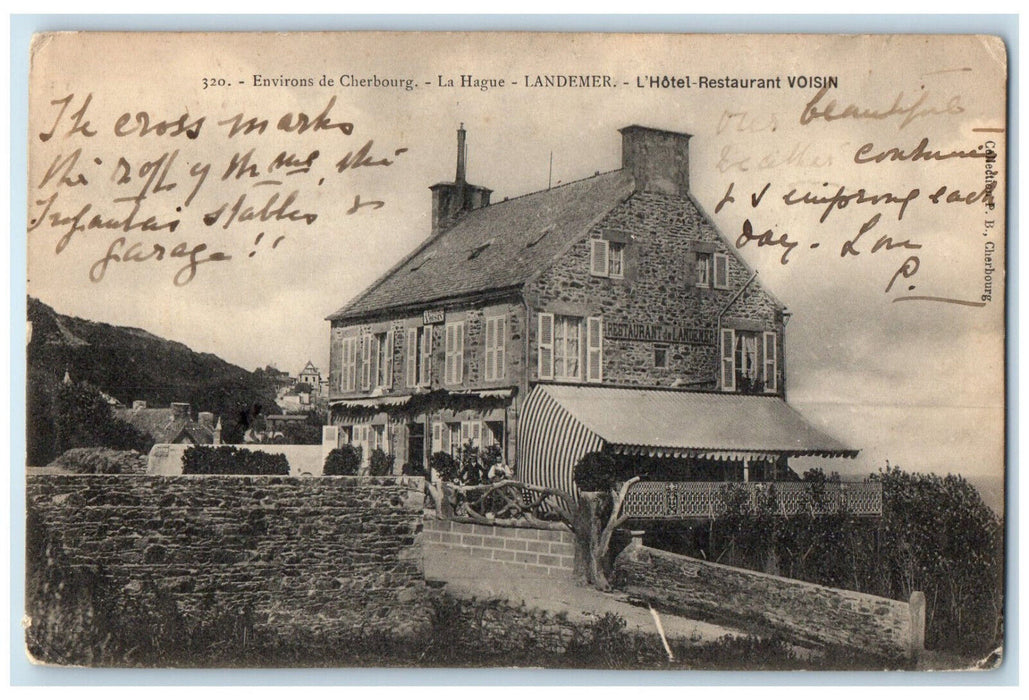 320. - Environs de Cherbourg. - La Hague - LANDEMER. - L'Hôtel-Restaurant VOISIN
The cross marks
the roof of the the
stables &
garage!!
our beautiful
weather continues
& I improng each
day. Love
P.
Collection P. B., Cherbourg
VOISIN
RESTAURANT de LANDEMER